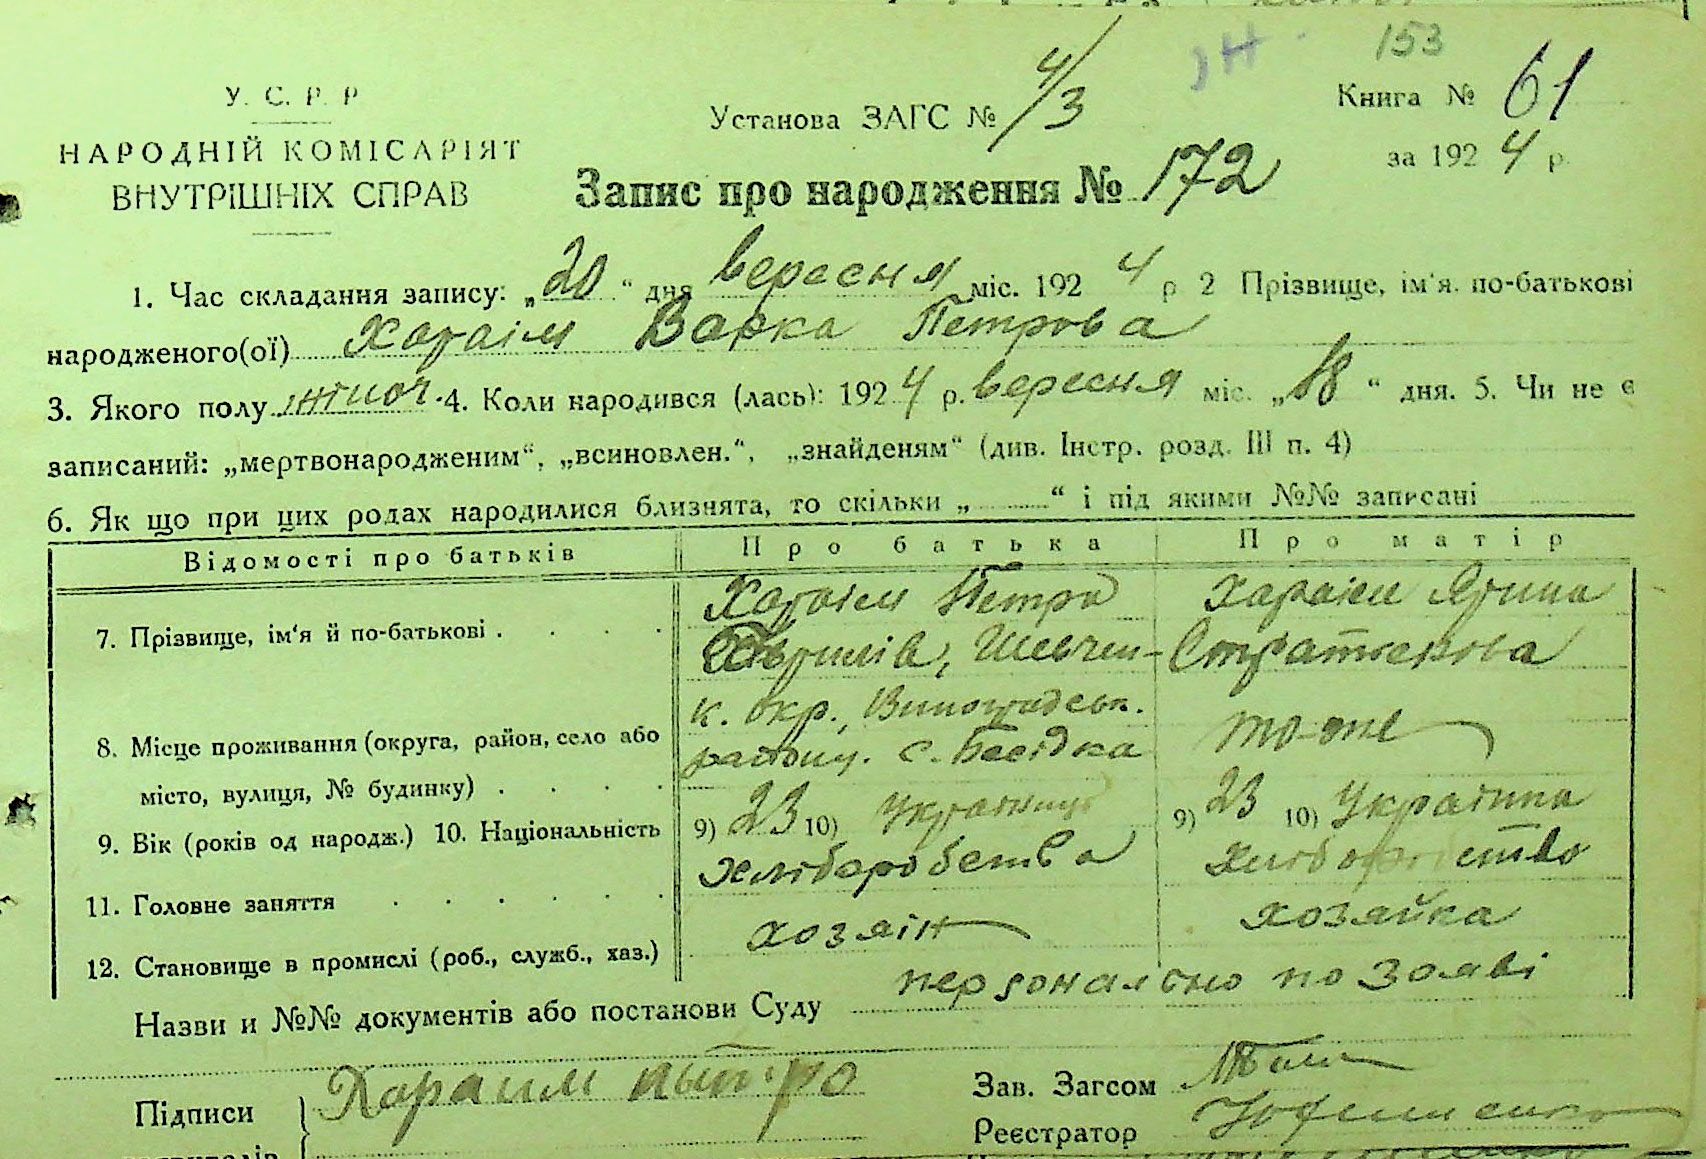 153
У. С. Р. Р
Установа ЗАГС № 4/3
Книга № 61
НАРОДНІЙ КОМІСАРІЯТ
за 1924 р.
ВНУТРІШНІХ СПРАВ
Запис про народження № 172
1. Час складання запису: „20“ дня вересня міс. 1924 р 2 Прізвище, ім'я, по-батькові
народженого(ої) Хараім Варка Петрова
3. Якого полу жіноч. 4. Коли народився (лась): 1924 р. вересня міс. „18“ дня. 5. Чи не є
записаний: „мертвонародженим“, „всиновлен.“, „знайденям“ (див. Інстр. розд. III п. 4)
6. Як що при цих родах народилися близнята, то скільки „ “ і під якими №№ записані
Відомості про батьків Про батька Про матір
7. Прізвище, ім'я й по-батькові . . . .
Хараім Петро
Гаврилів, Шевчен-
Хараім Ярина
8. Місце проживання (округа, район, село або
місто, вулиця, № будинку) . . . .
к. окр., Виноградськ.
району. с. Бесідка
то-же
9. Вік (років од народж.) 10. Національність 9) 23 10) Українці 9) 23 10) Українка
11. Головне заняття . . . . . . хліборобства хліборобство
12. Становище в промислі (роб., служб., хаз.) хозяін хозяйка
Назви и №№ документів або постанови Суду персонально по заяві
Підписи } Хараим пытро
Зав. Загсом
Реєстратор